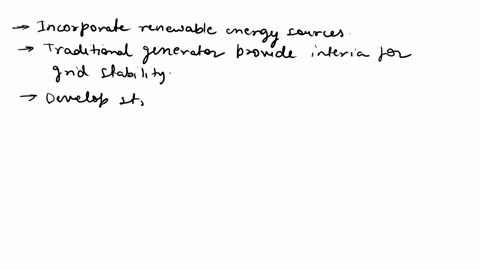 → Incorporate renewable energy sources.
→ Traditional generator provide interia for
grid stability.
→ Develop st